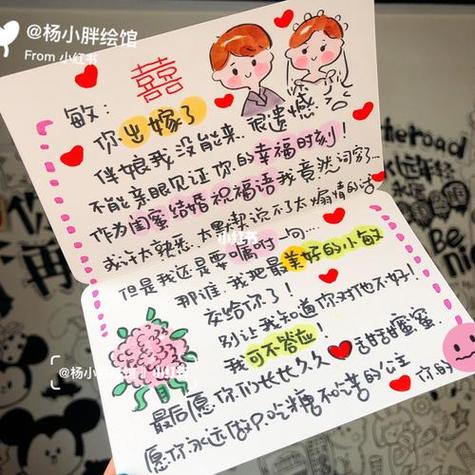 @杨小胖绘馆
From 小红书
囍
敏:
你出嫁了
伴娘我没能来..很遗憾?
不能亲眼见证你的幸福时刻!
作为闺蜜结婚祝福语我竟然词穷了...
或许太熟悉.太黑
说不了太煽情的话
但是我还是要嘱咐一句...
那谁,我把最美好的小敏
交给你了!
别让我知道你对他不好!
我可不答应!
最后愿你们长长久久❤甜甜蜜蜜.
愿你永远做只吃糖不吃苦的公主
你的
小红书
@杨小胖绘馆 小红书
eroad
永远年轻
Be